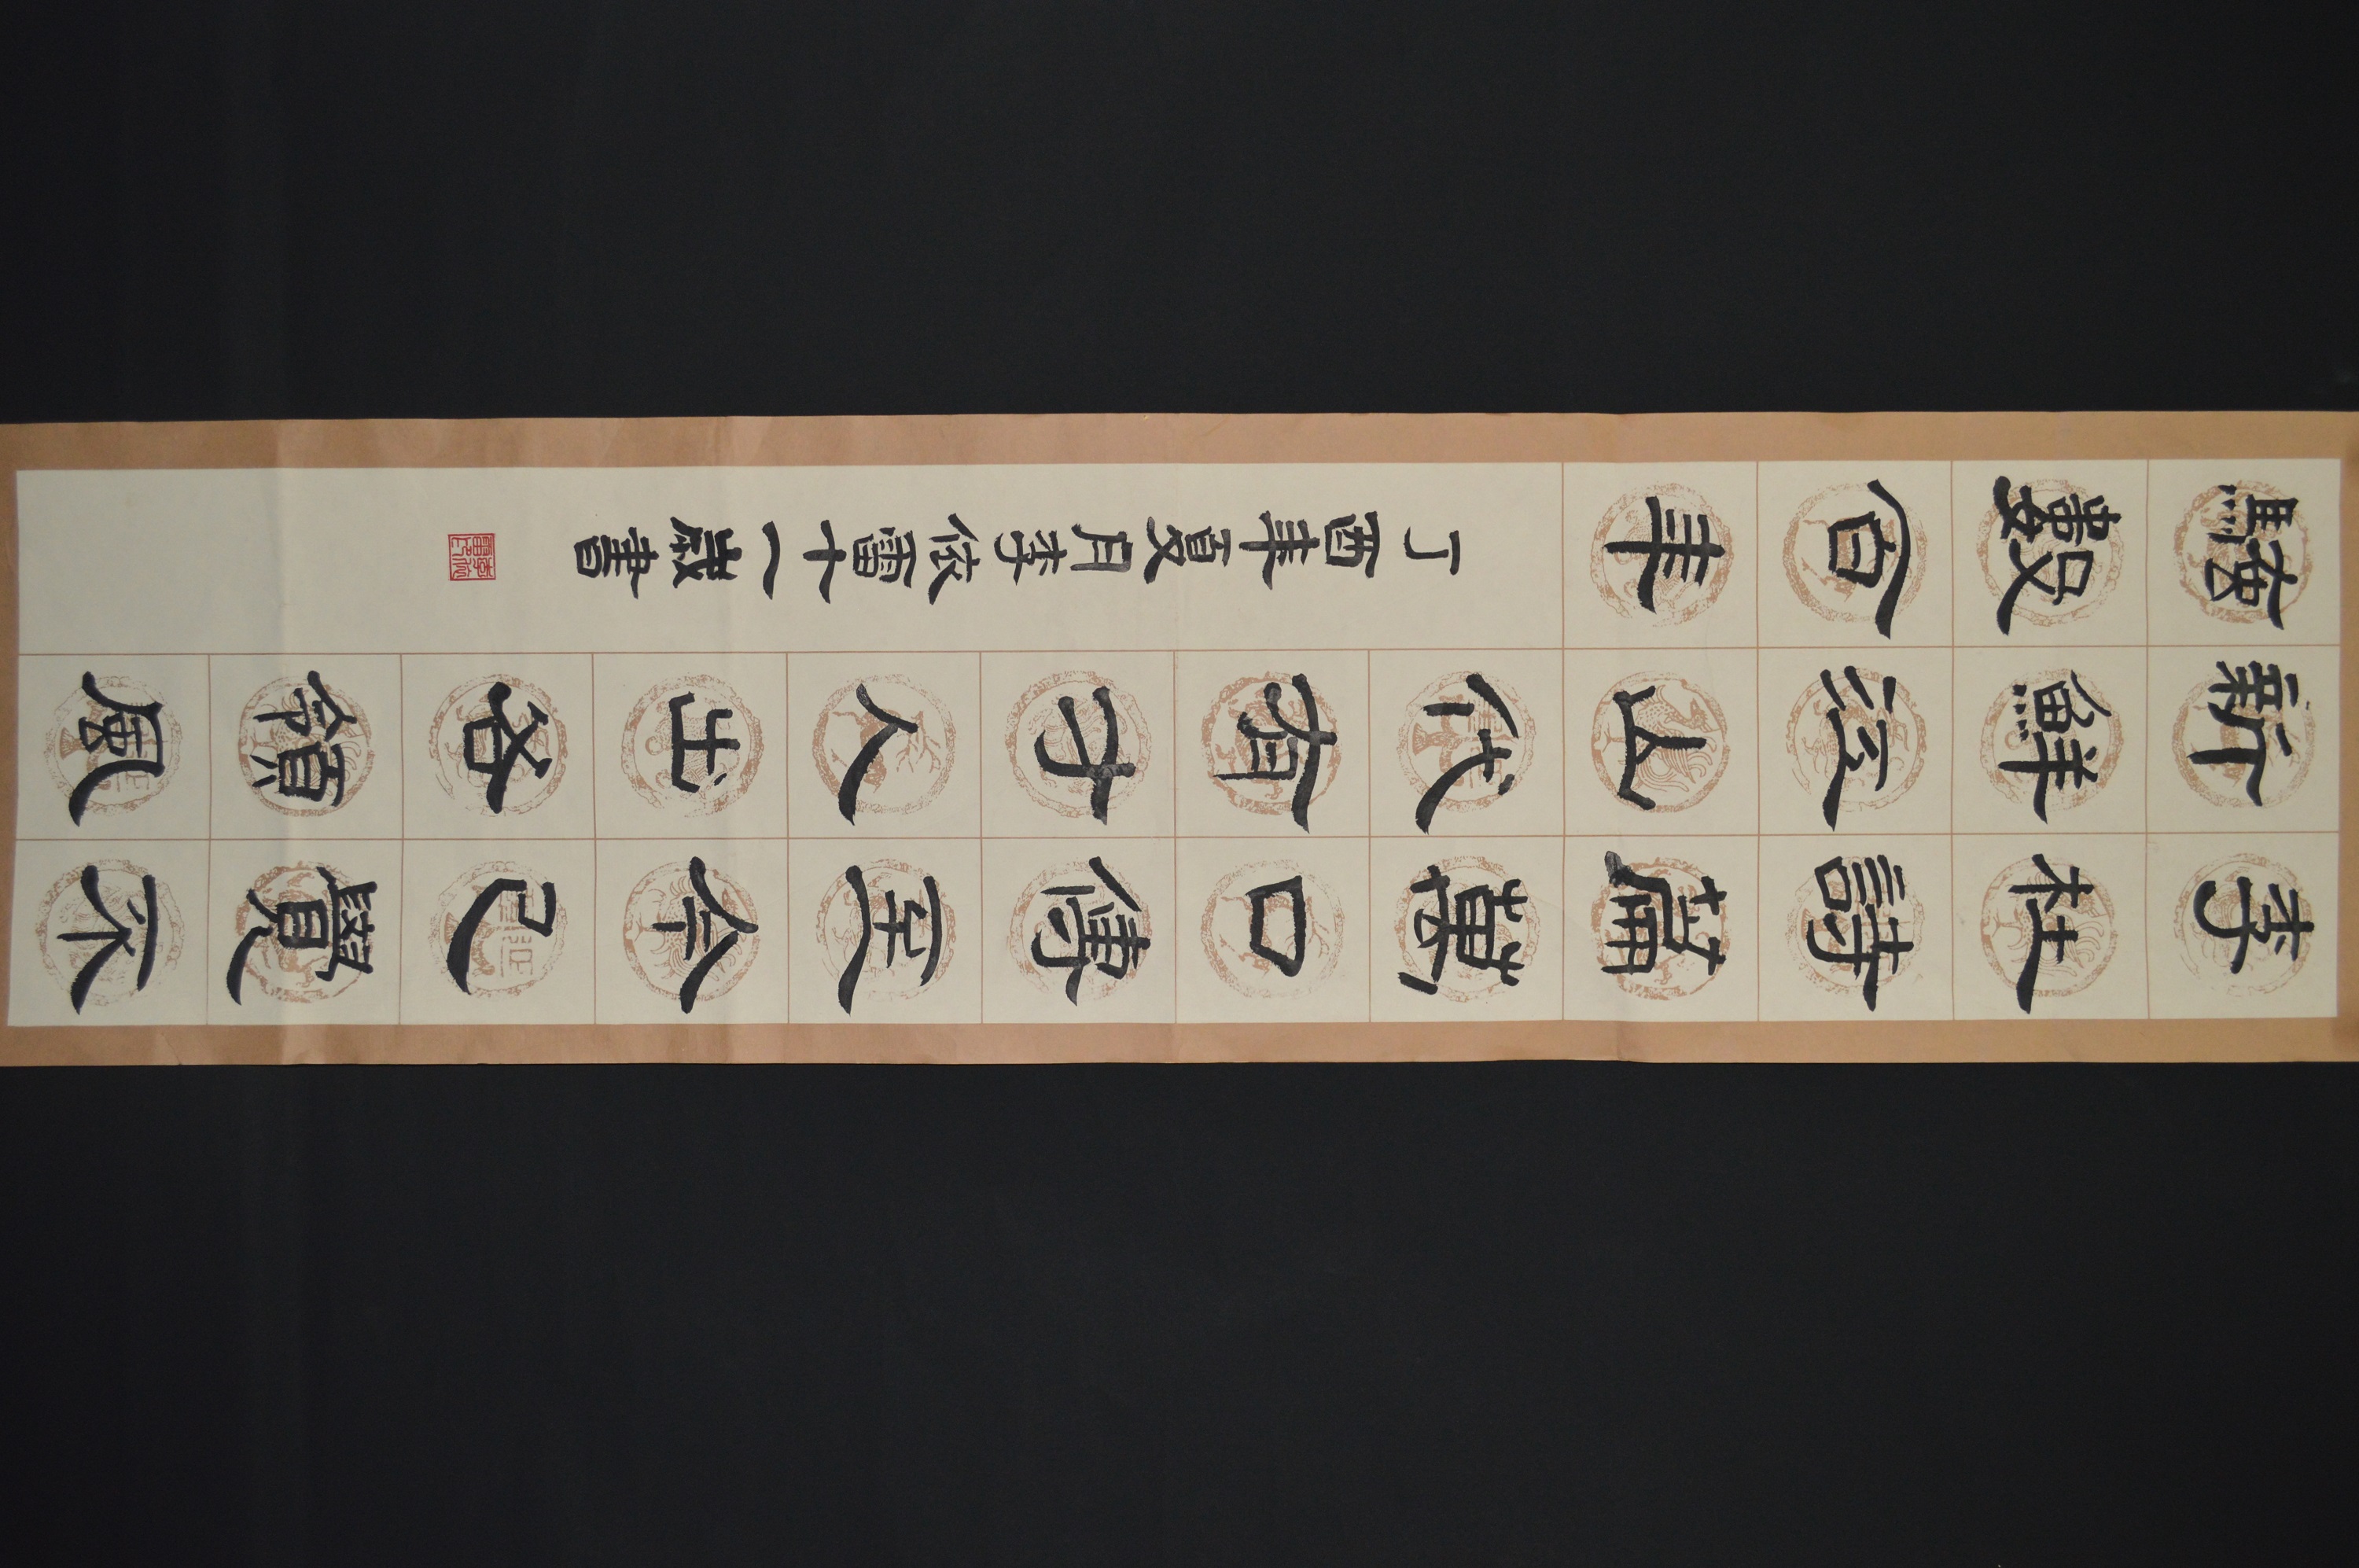 李杜詩篇萬口傳至今已覺不
新鮮江山代有才人出各領風
騷數百年
丁酉年夏月李依十一歲書